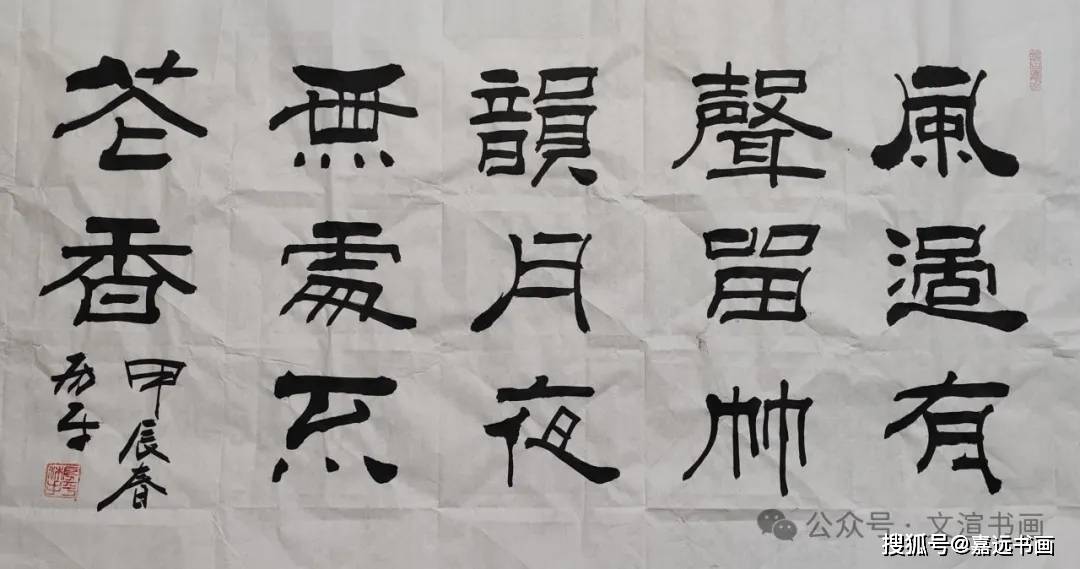 風過有
聲留竹
韻月夜
無處不
花香
甲辰春
公众号·文渲书画
搜狐号@嘉远书画